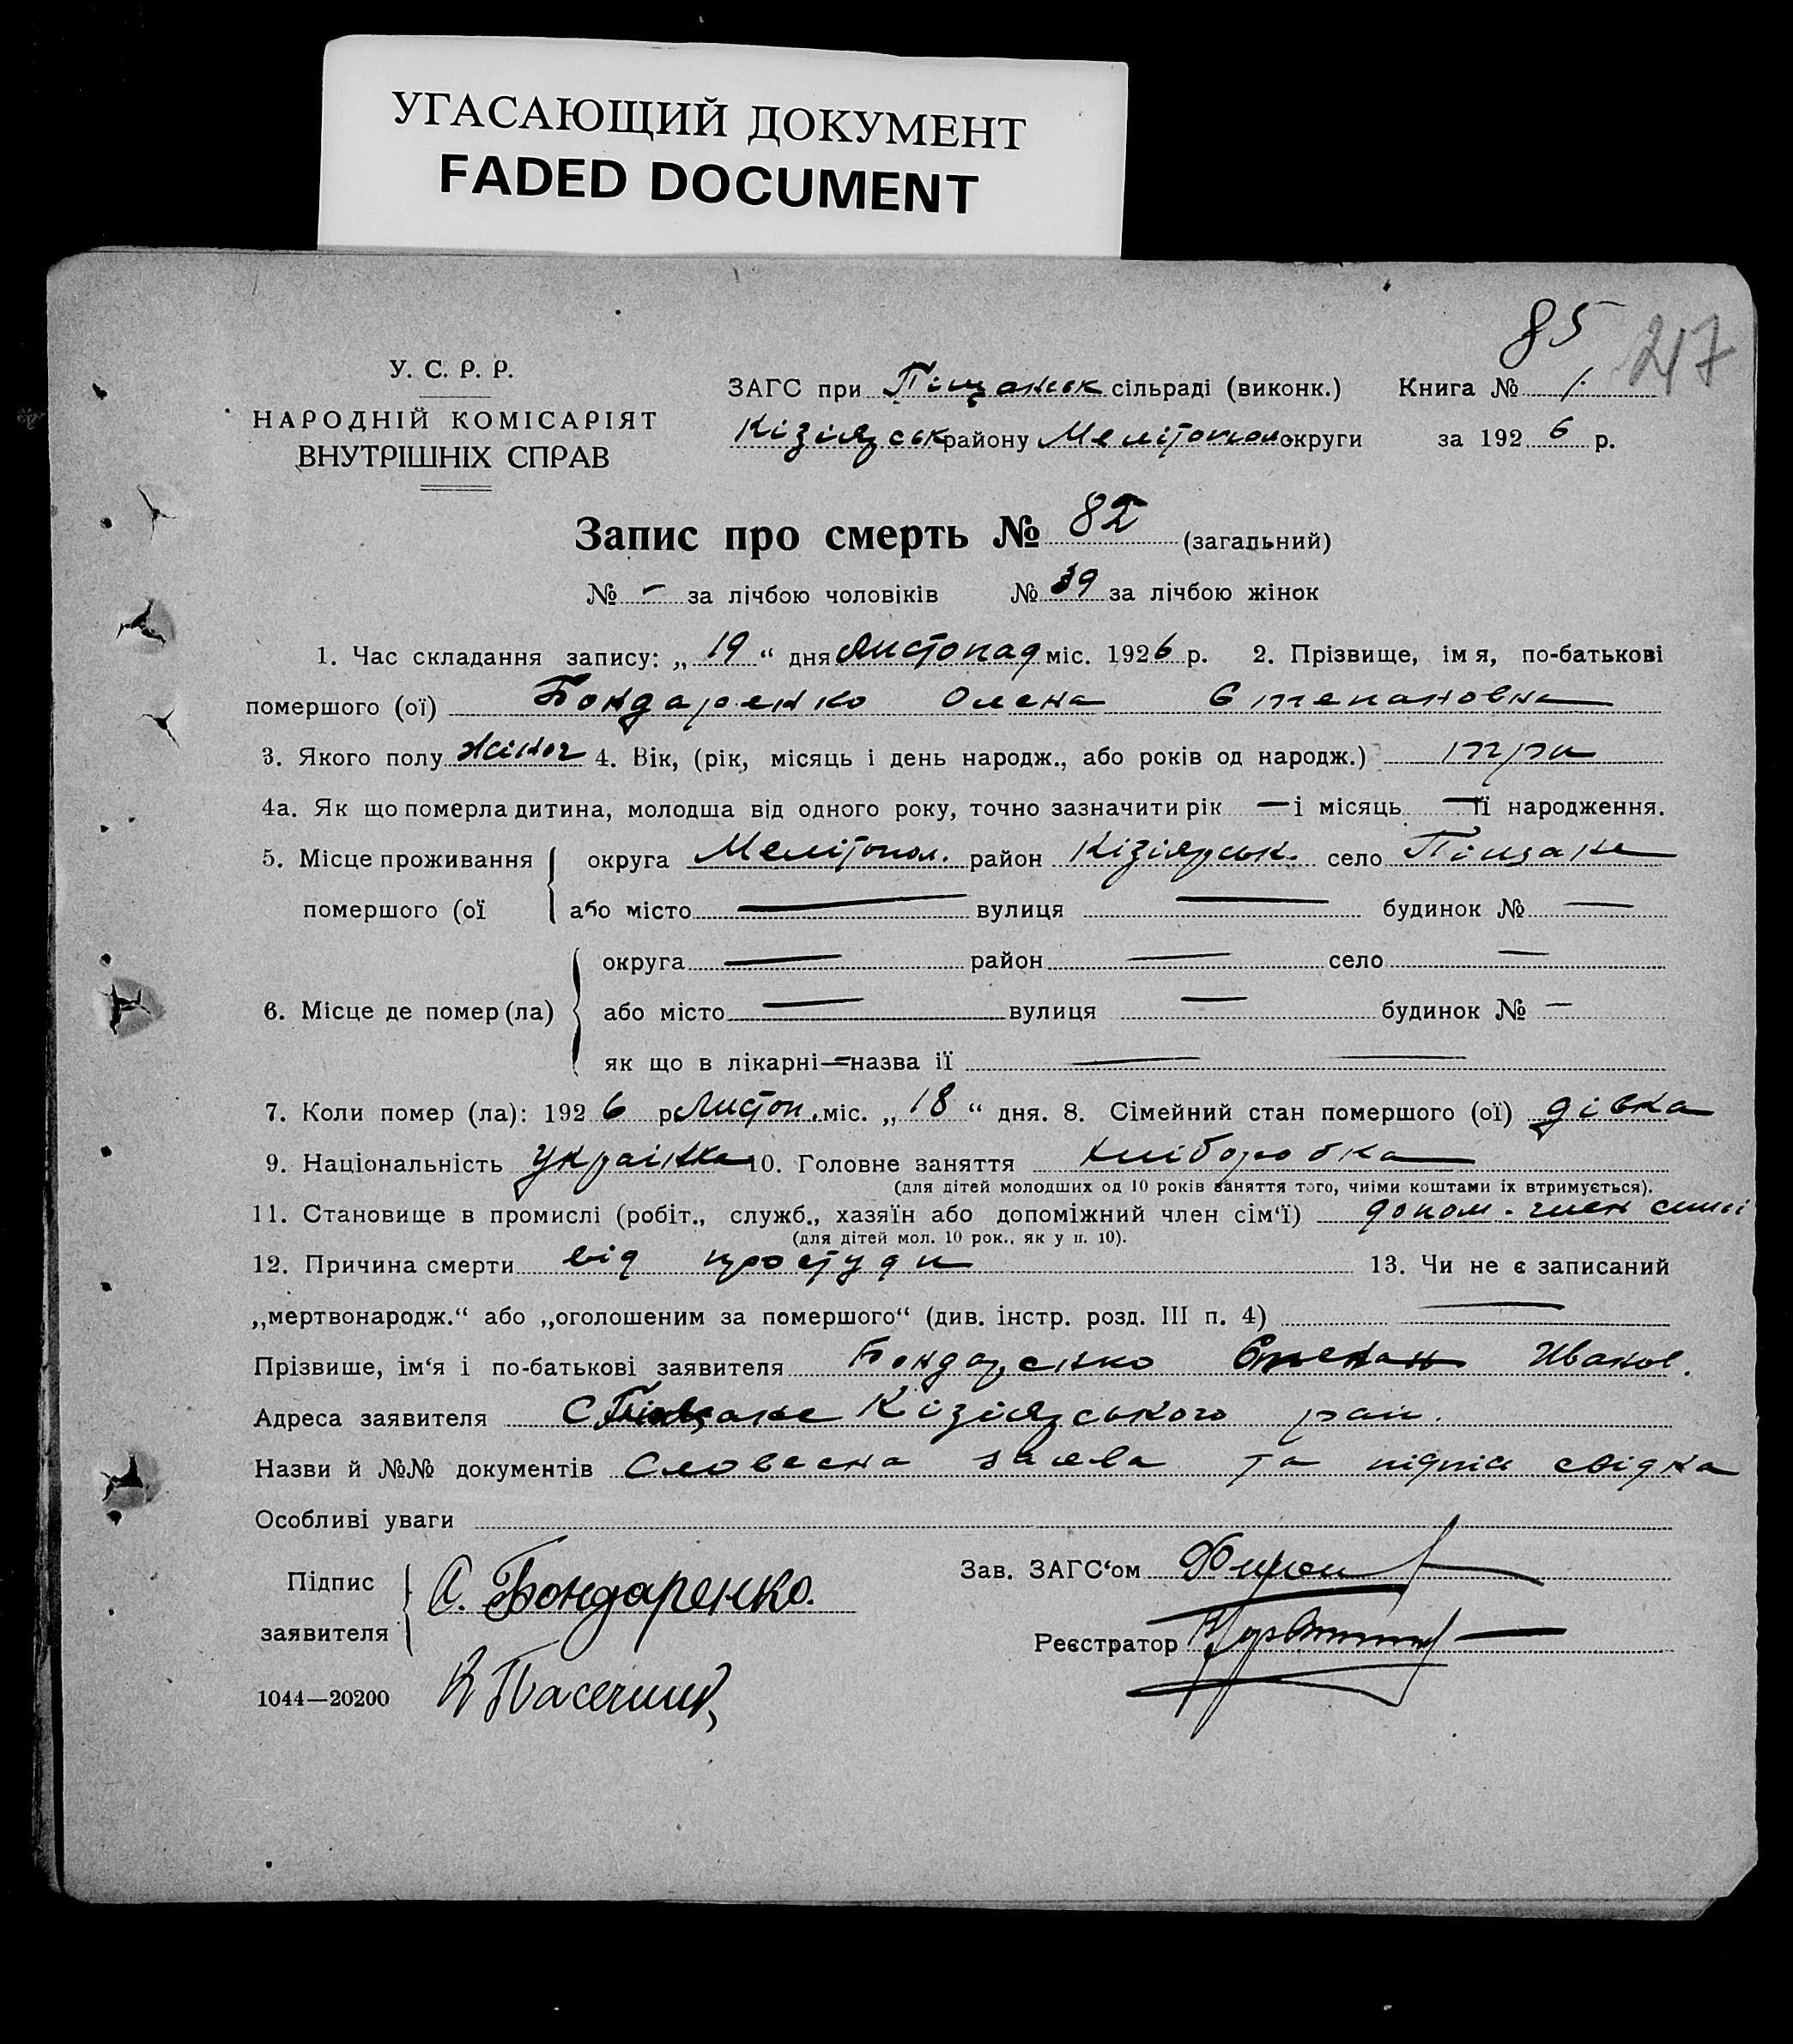 УГАСАЮЩИЙ ДОКУМЕНТ
FADED DOCUMENT
85 217
У. С. Р. Р.
НАРОДНІЙ КОМІСАРІЯТ
ВНУТРІШНІХ СПРАВ
ЗАГС при Піщанськ сільраді (виконк.) Книга № 1.
Кізіярськ району Мелітопол округи за 192 6 р.
Запис про смерть № 82 (загальний)
№ - за лічбою чоловіків № 39 за лічбою жінок
1. Час складання запису: „ 19 “ дня Листопад міс. 1926 р. 2. Прізвище, імя, по-батькові
помершого (ої) Бондаренко Олена Степановна
3. Якого полу жіноч 4. Вік, (рік, місяць і день народж., або років од народж.) три
4а. Як що померла дитина, молодша від одного року, точно зазначити рік — і місяць — її народження.
5. Місце проживання округа Мелітопол. район Кізіярськ. село Піщане
помершого (ої або місто — вулиця — будинок № —
округа — район — село —
6. Місце де помер (ла) або місто — вулиця — будинок № —
як що в лікарні—назва ії — —
7. Коли помер (ла): 192 6 р. Листоп. міс. „ 18 “ дня. 8. Сімейний стан помершого (ої) дівка
9. Національність Українка 10. Головне заняття хліборобка
(для дітей молодших од 10 років заняття того, чиїми коштами їх втримується).
11. Становище в промислі (робіт., служб., хазяїн або допоміжний член сім‘ї) допом. член симї
(для дітей мол. 10 рок., як у п. 10).
12. Причина смерти від простуди 13. Чи не є записаний
„мертвонародж.“ або „оголошеним за помершого“ (див. інстр. розд. III п. 4) —
Прізвише, ім‘я і по-батькові заявителя Бондаренко Степан Иванов.
Адреса заявителя С Піщане Кізіярського рай.
Назви й №№ документів Словесна заява та підпис свідка
Особливі уваги
Підпис
заявителя
С. Бондаренко.
Зав. ЗАГС‘ом
Реєстратор
1044—20200